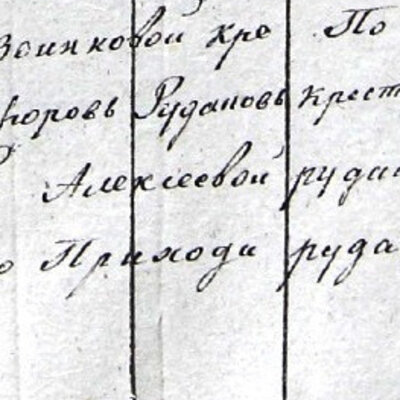 Воинковой кре По
Рудановъ крест
Алексеевой руда
Приходи руда